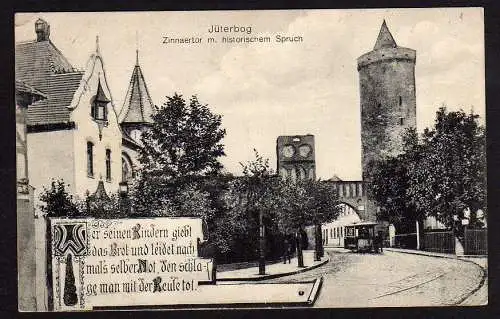 Jüterbog
Zinnaertor m. historischem Spruch
Wer seinen Kindern giebt
das Brot und leidet nach
mals selber Not, den schla-
ge man mit der Keule tot.